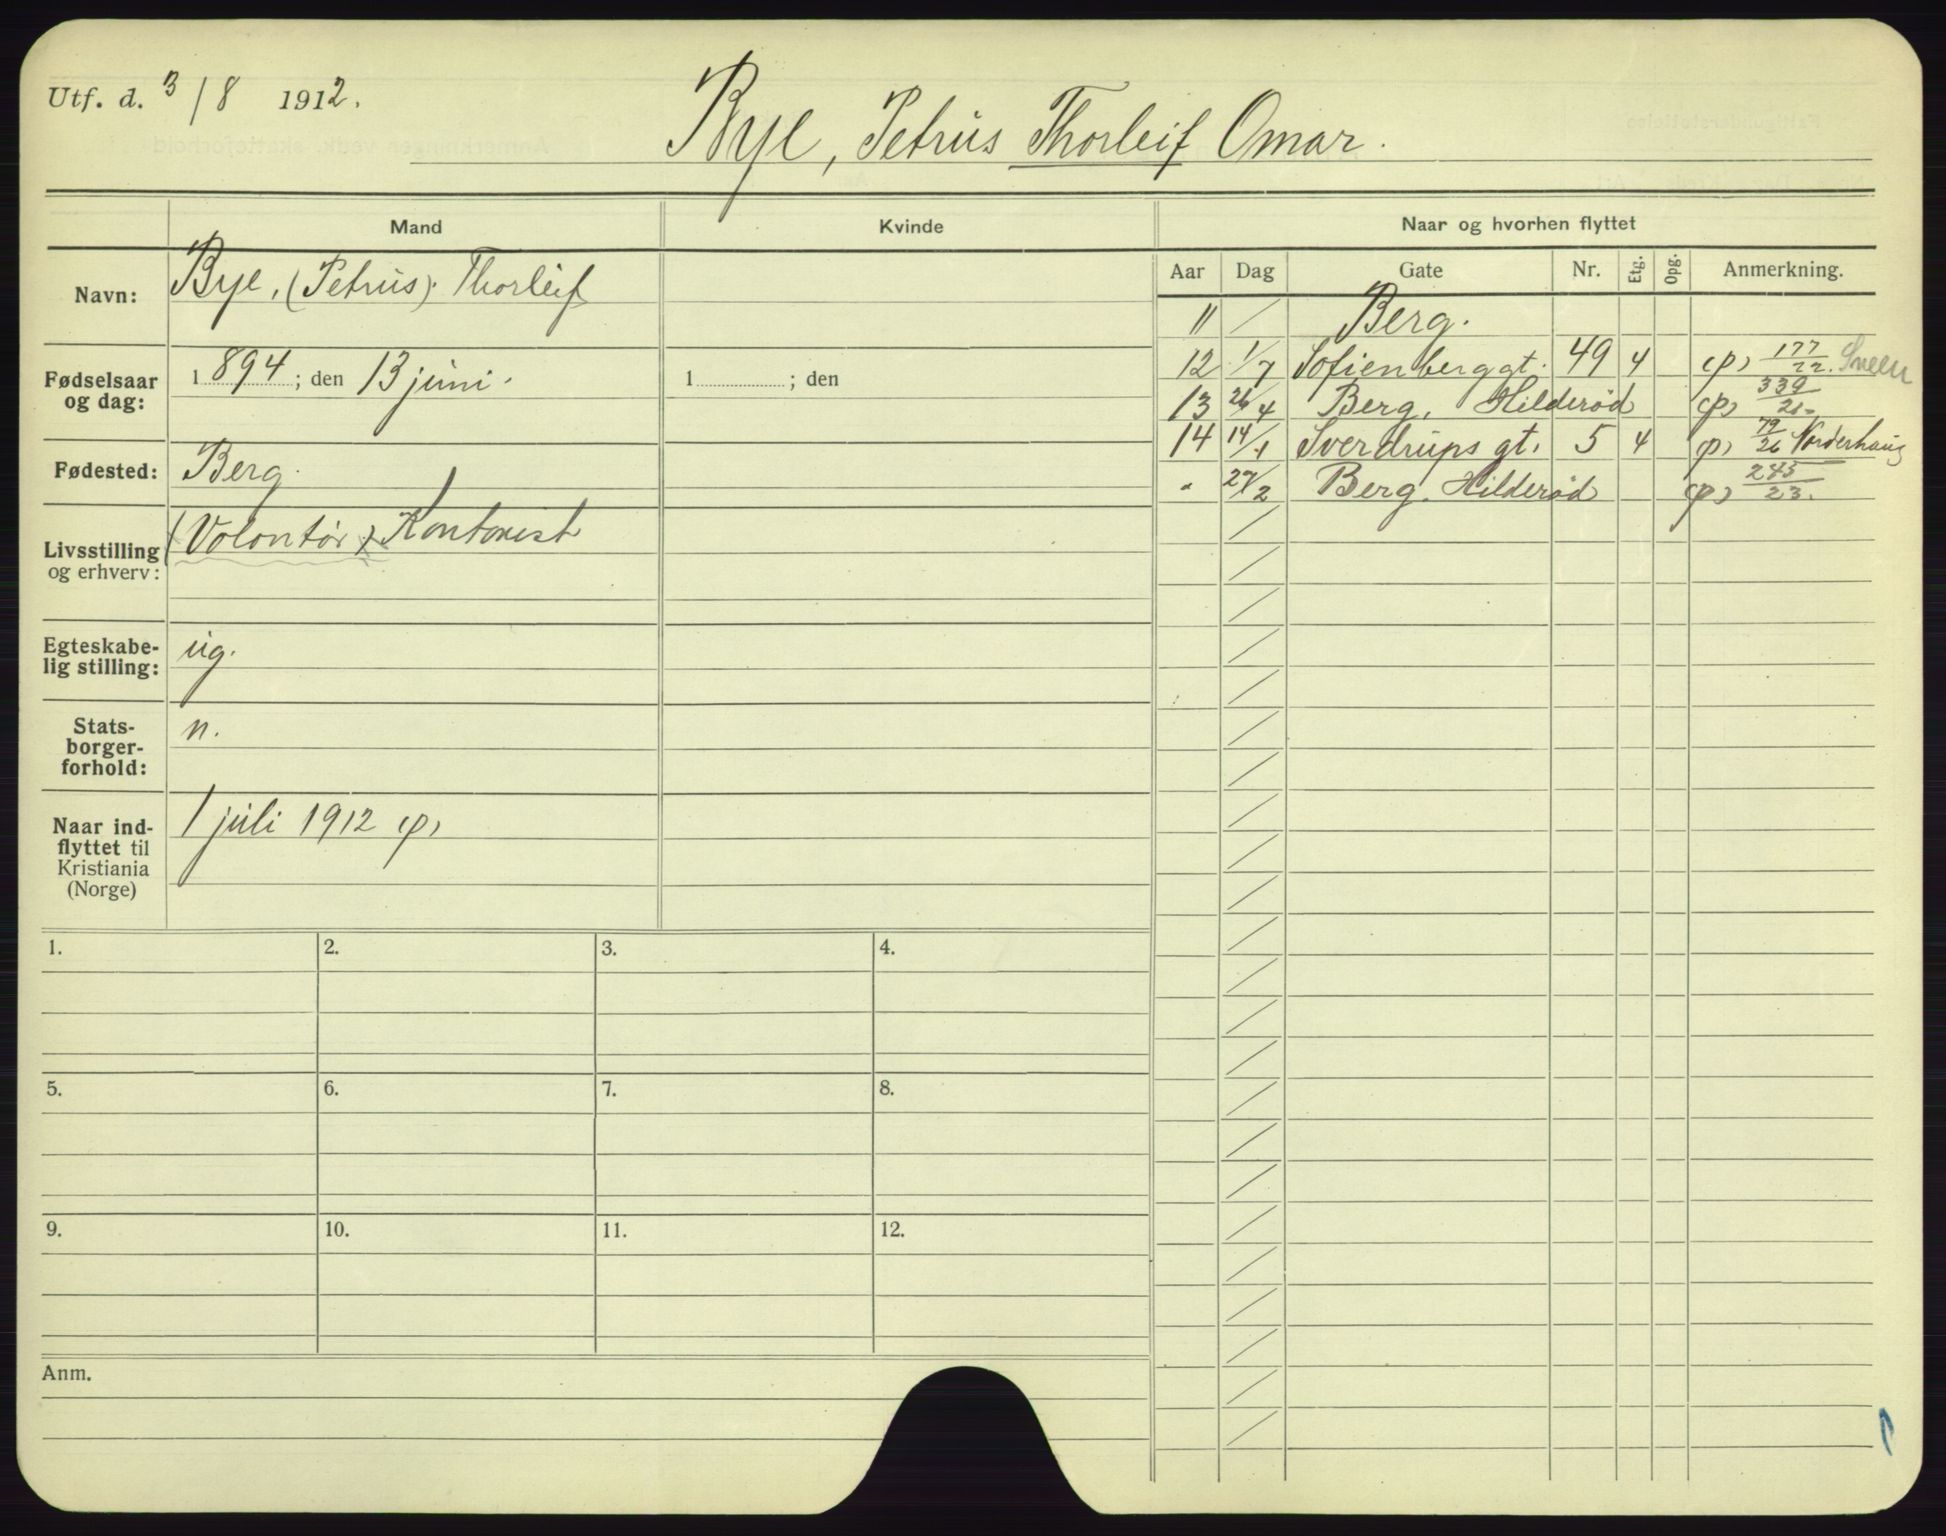 Utf. d. 3/8 1912.
Bye, Petrus Thorleif Omar.
Mand
Kvinde
Naar og hvorhen flyttet
Aar Dag Gate Nr. Etg. Opg. Anmerkning.
Navn: Bye, (Petrus) Thorleif
Fødselsaar og dag: 1894; den 13 juni.
1 ; den
Fødested: Berg.
Livsstilling og erhverv: (Volontør) Kontorist
Egteskabe-
lig stilling: ug.
Stats-
borger-
forhold: n.
Naar ind-
flyttet til
Kristiania
(Norge)
1 juli 1912 (p)
11 / Berg.
12 1/7 Sofienberggt. 49 4 (p) 177/22. Sneen
13 26/4 Berg, Hilderød (p) 339/
14 14/1 Sverdrups gt. 5 4 (p) 79/26 Norderhaug
" 27/2 Berg. Hilderød (p) 245/23.
1. 2. 3. 4.
5. 6. 7. 8.
9. 10. 11. 12.
Anm.